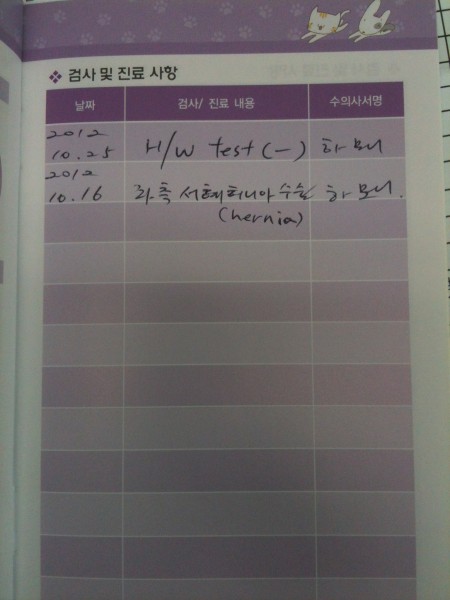 ❖ 검사 및 진료 사항
날짜 검사/ 진료 내용 수의사서명
2012
10.25 H/W test (-) 하모니
2012
10.16 좌측 서혜허니아 수술 하모니.
(hernia)